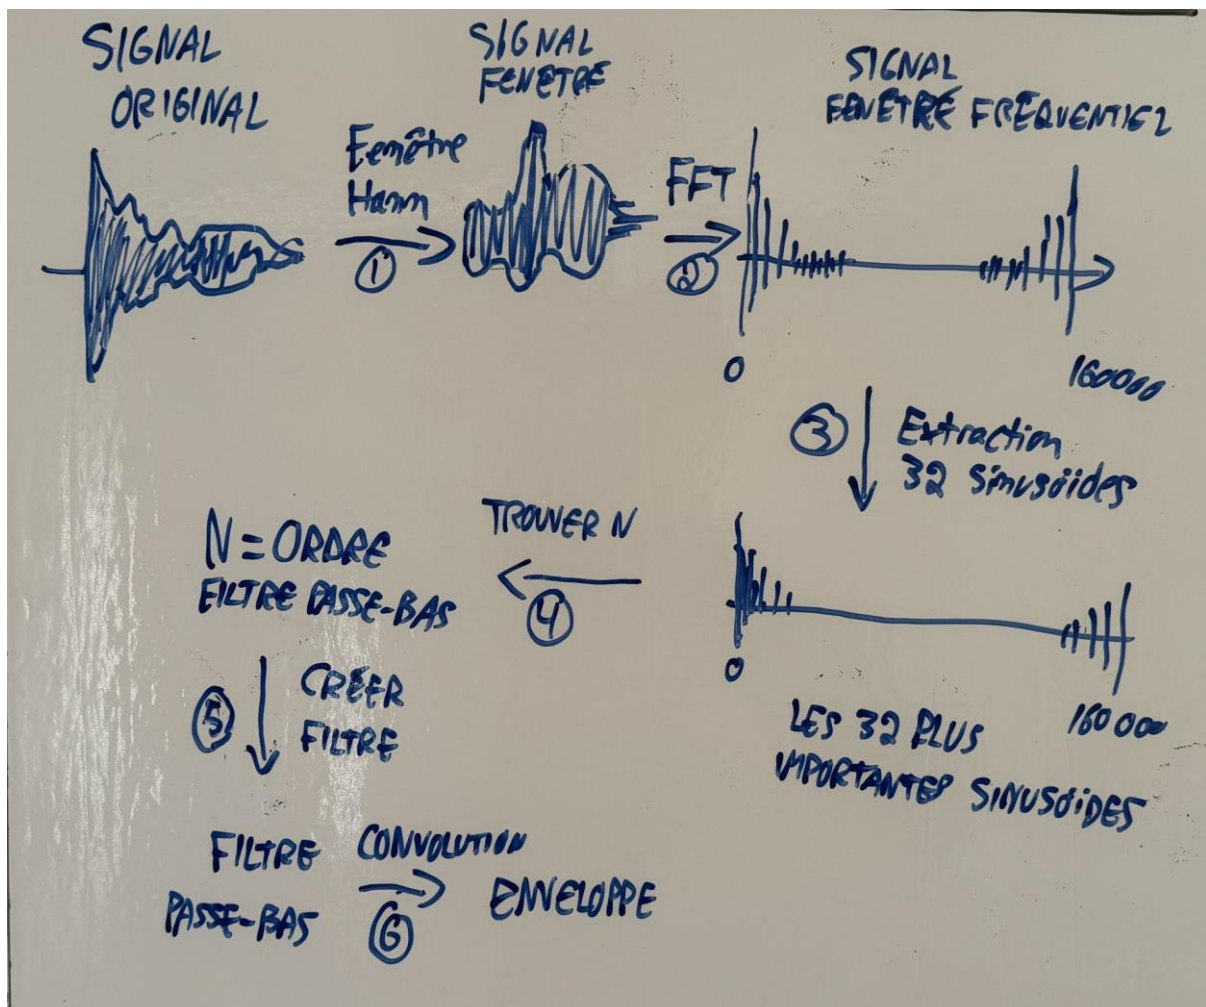 SIGNAL
ORIGINAL
Fenêtre
Hann
①
SIGNAL
FENÊTRE
FFT
②
SIGNAL
FENÊTRÉ FRÉQUENTIEL
0
160000
③
Extraction
32 Sinusoïdes
0
160 000
LES 32 PLUS
IMPORTANTES SINUSÖIDES
TROUVER N
④
N = ORDRE
FILTRE PASSE-BAS
⑤
CRÉER
FILTRE
FILTRE
PASSE-BAS
CONVOLUTION
⑥
ENVELOPPE